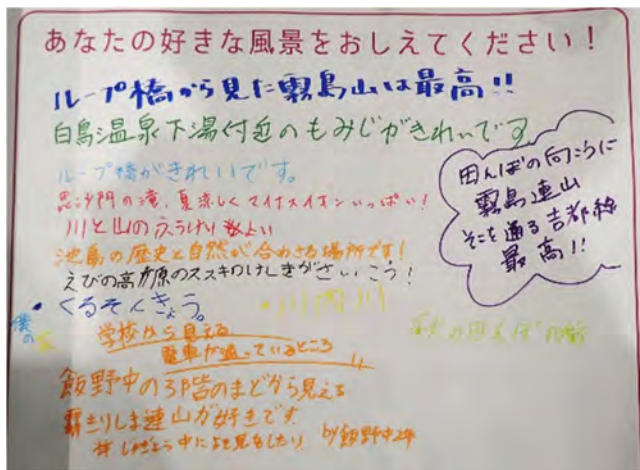 あなたの好きな風景をおしえてください！
ループ橋から見た霧島山は最高!!
白鳥温泉下湯付近のもみじがきれいです
ループ橋がきれいです。
毘沙門の滝、夏涼しくてマイナスイオンいっぱい！
川と山の
池島の歴史と自然が合わさる場所です！
えびの高原のススキのけしきがさいこう！
・くるそんきょう。
・川内川
僕の
学校から見える
電車が通っているところ
飯野中の3階のまどから見える
霧きりしま連山が好きです
#じゅぎょう中によそ見をしたり by飯野中2年
田んぼの向こうに
霧島連山
そこを通る吉都線
最高!!